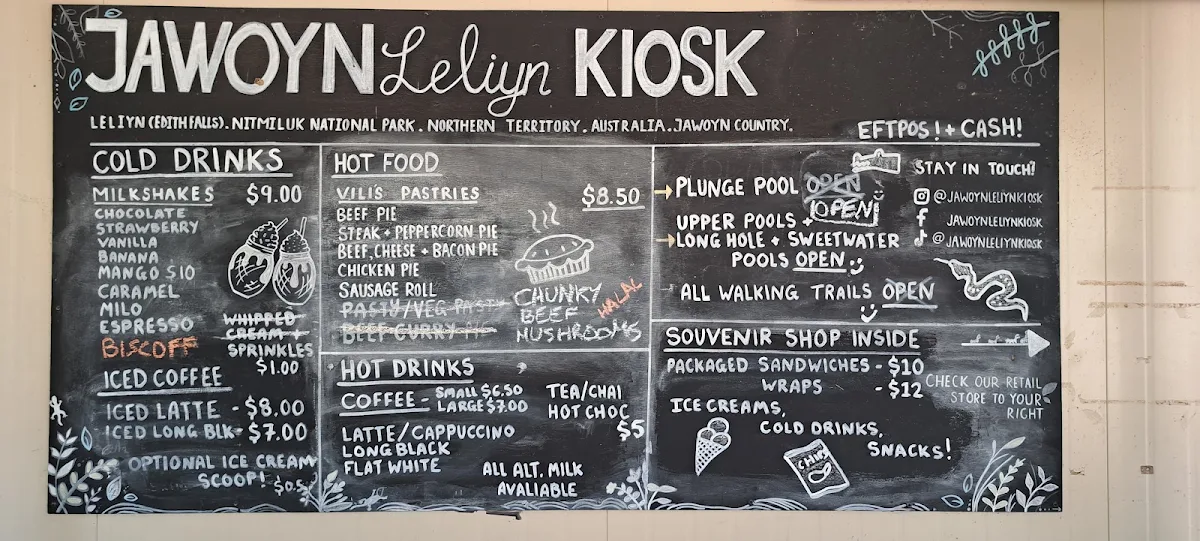 JAWOYN Leliyn KIOSK
LELIYN (EDITH FALLS). NITMILUK NATIONAL PARK. NORTHERN TERRITORY. AUSTRALIA. JAWOYN COUNTRY.
EFTPOS! + CASH!
COLD DRINKS
MILKSHAKES $9.00
CHOCOLATE
STRAWBERRY
VANILLA
BANANA
MANGO $10
CARAMEL
MILO
ESPRESSO
BISCOFF
WHIPPED
CREAM +
SPRINKLES
$1.00
ICED COFFEE
ICED LATTE - $8.00
ICED LONG BLK - $7.00
OPTIONAL ICE CREAM
SCOOP!
HOT FOOD
VILI'S PASTRIES $8.50
BEEF PIE
STEAK + PEPPERCORN PIE
BEEF, CHEESE + BACON PIE
CHICKEN PIE
SAUSAGE ROLL
PASTY/VEG PASTY
BEEF CURRY
CHUNKY
BEEF
MUSHROOMS
HALAL
HOT DRINKS
COFFEE - SMALL $6.50
LARGE $7.00
LATTE/CAPPUCCINO
LONG BLACK
FLAT WHITE
TEA/CHAI
HOT CHOC
$5
ALL ALT. MILK
AVALIABLE
PLUNGE POOL OPEN
OPEN!
UPPER POOLS +
LONG HOLE + SWEETWATER
POOLS OPEN
ALL WALKING TRAILS OPEN
STAY IN TOUCH?
@JAWOYNLELIYNKIOSK
JAWOYNLELIYNKIOSK
@JAWOYNLELIYNKIOSK
SOUVENIR SHOP INSIDE
PACKAGED SANDWICHES - $10
WRAPS - $12
CHECK OUR RETAIL
STORE TO YOUR
RIGHT
ICE CREAMS,
COLD DRINKS,
SNACKS!
CHIPS